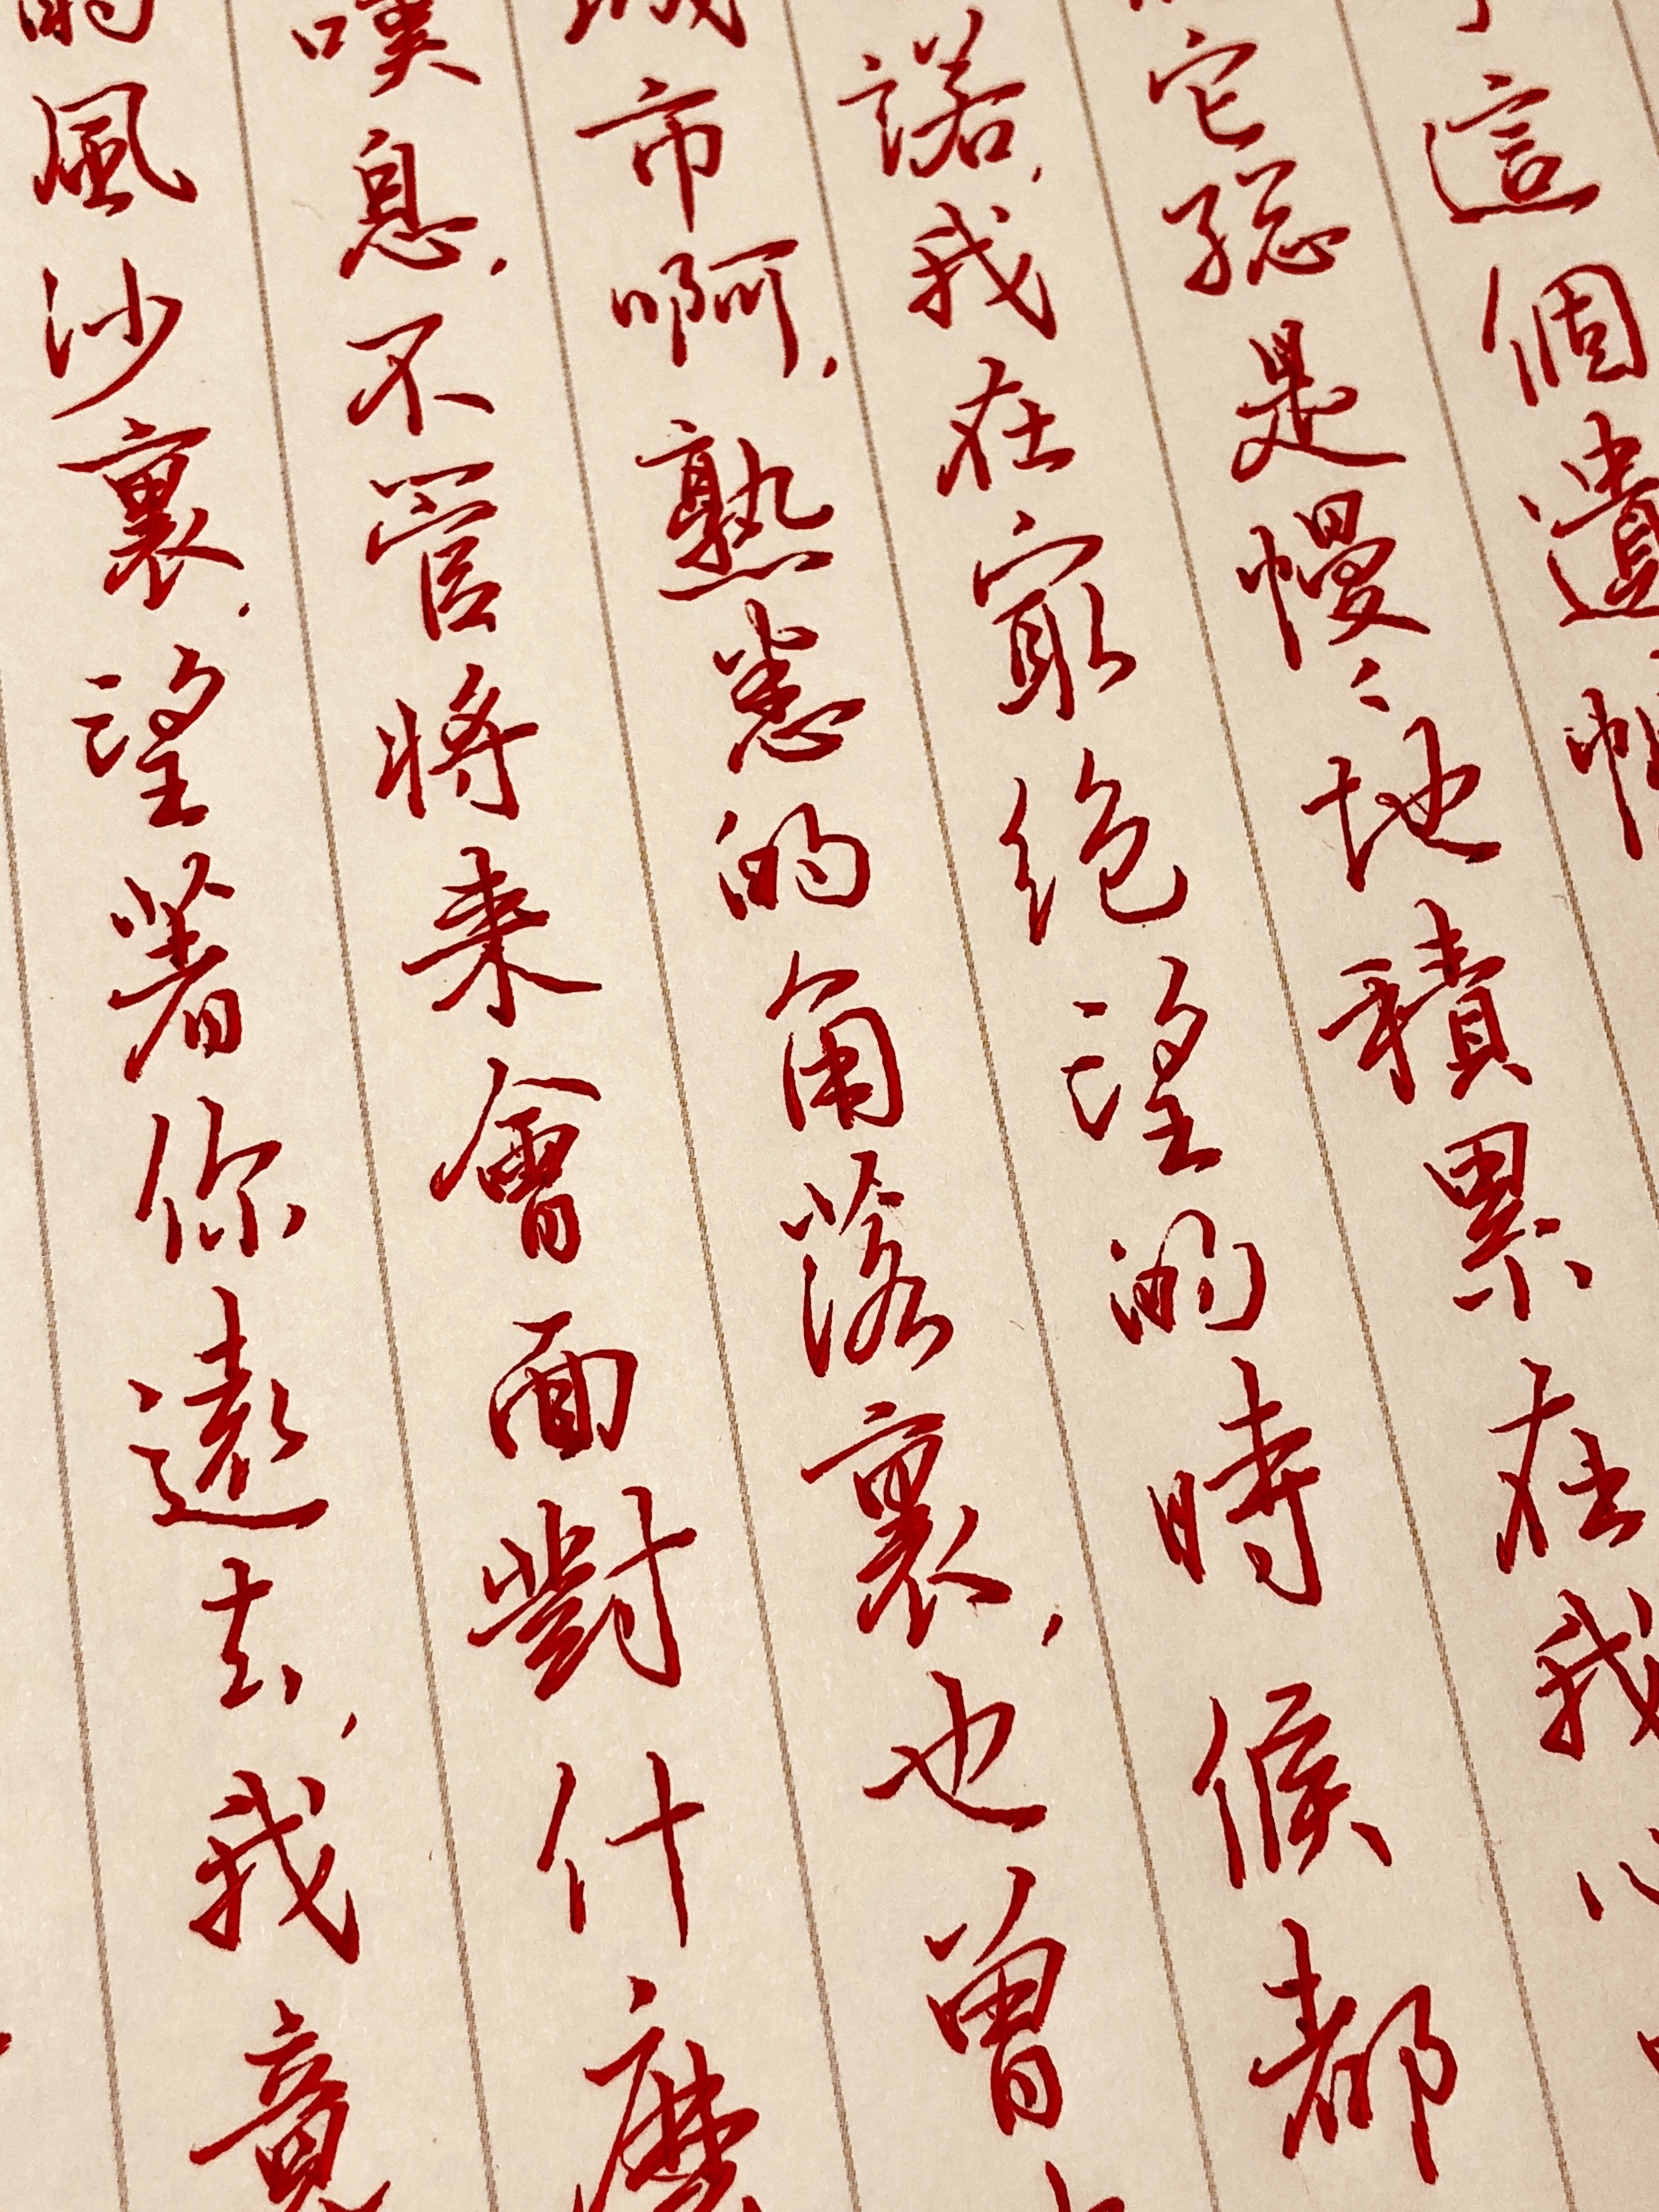 這個遺
它總是慢〻地積累在我
諾，我在最絕望的時候都
城市啊，熟悉的角落裏，也曾
嘆息，不管將來會面對什麼
的風沙裏，望著你遠去，我竟